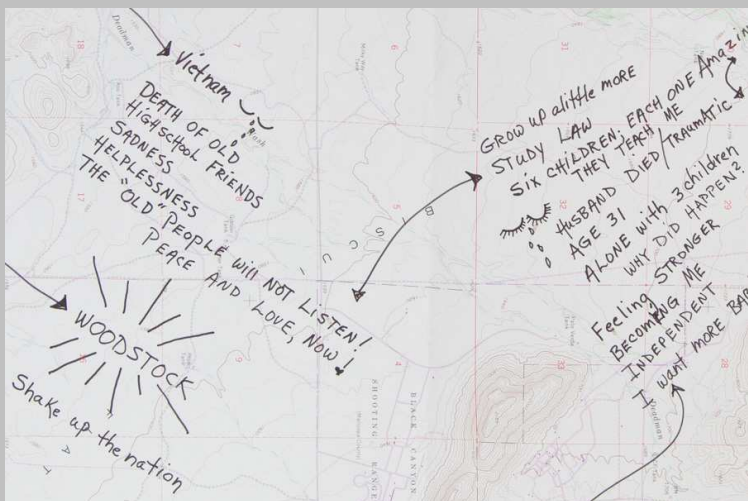 Vietnam
DEATH OF OLD
HIGHSCHOOL FRIENDS
SADNESS
HELPLESSNESS
THE "OLD" PEOPLE will NOT LISTEN!
PEACE AND LOVE, NOW!
WOODSTOCK
Shake up the nation
GROW up alittle more
STUDY LAW
Six CHILDREN, EACH ONE Amazin
THEY TEACH ME
HUSBAND DIED/TRAUMATIC
AGE 31
ALONE with 3 children
WHY DID HAPPEN?
Feeling STRONGER
BECOMING ME
INDEPENDENT
I want MORE BAB
Deadman
18
7
6
31
17
5
32
B I S C U I
9
4
33
28
SHOOTING RANGE
BLACK CANYON
Deadman